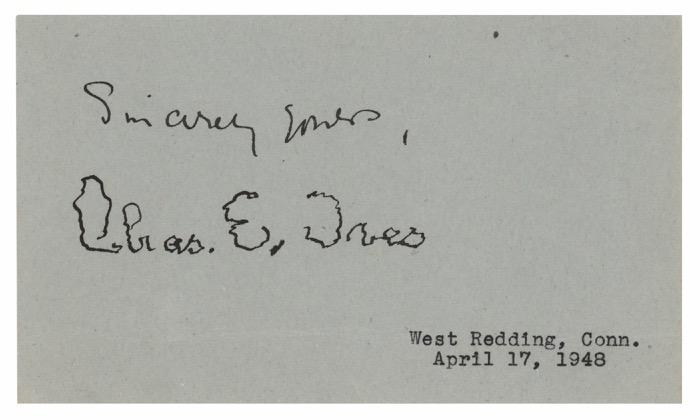 Sincerely yours,
Chas. E. Ives
West Redding, Conn.
April 17, 1948